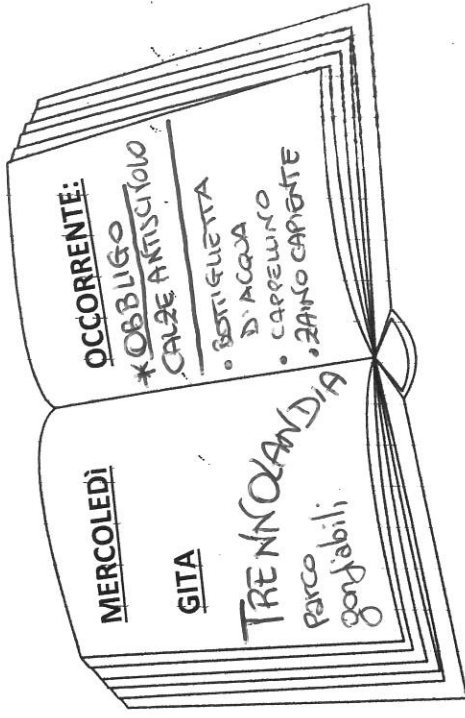 MERCOLEDÌ
GITA
TRENNOLANDIA
parco
gonfiabili
OCCORRENTE:
*OBBLIGO
CALZE ANTISCIVOLO
• BOTTIGLIETTA
D'ACQUA
• CAPPELLINO
• ZAINO CAPIENTE